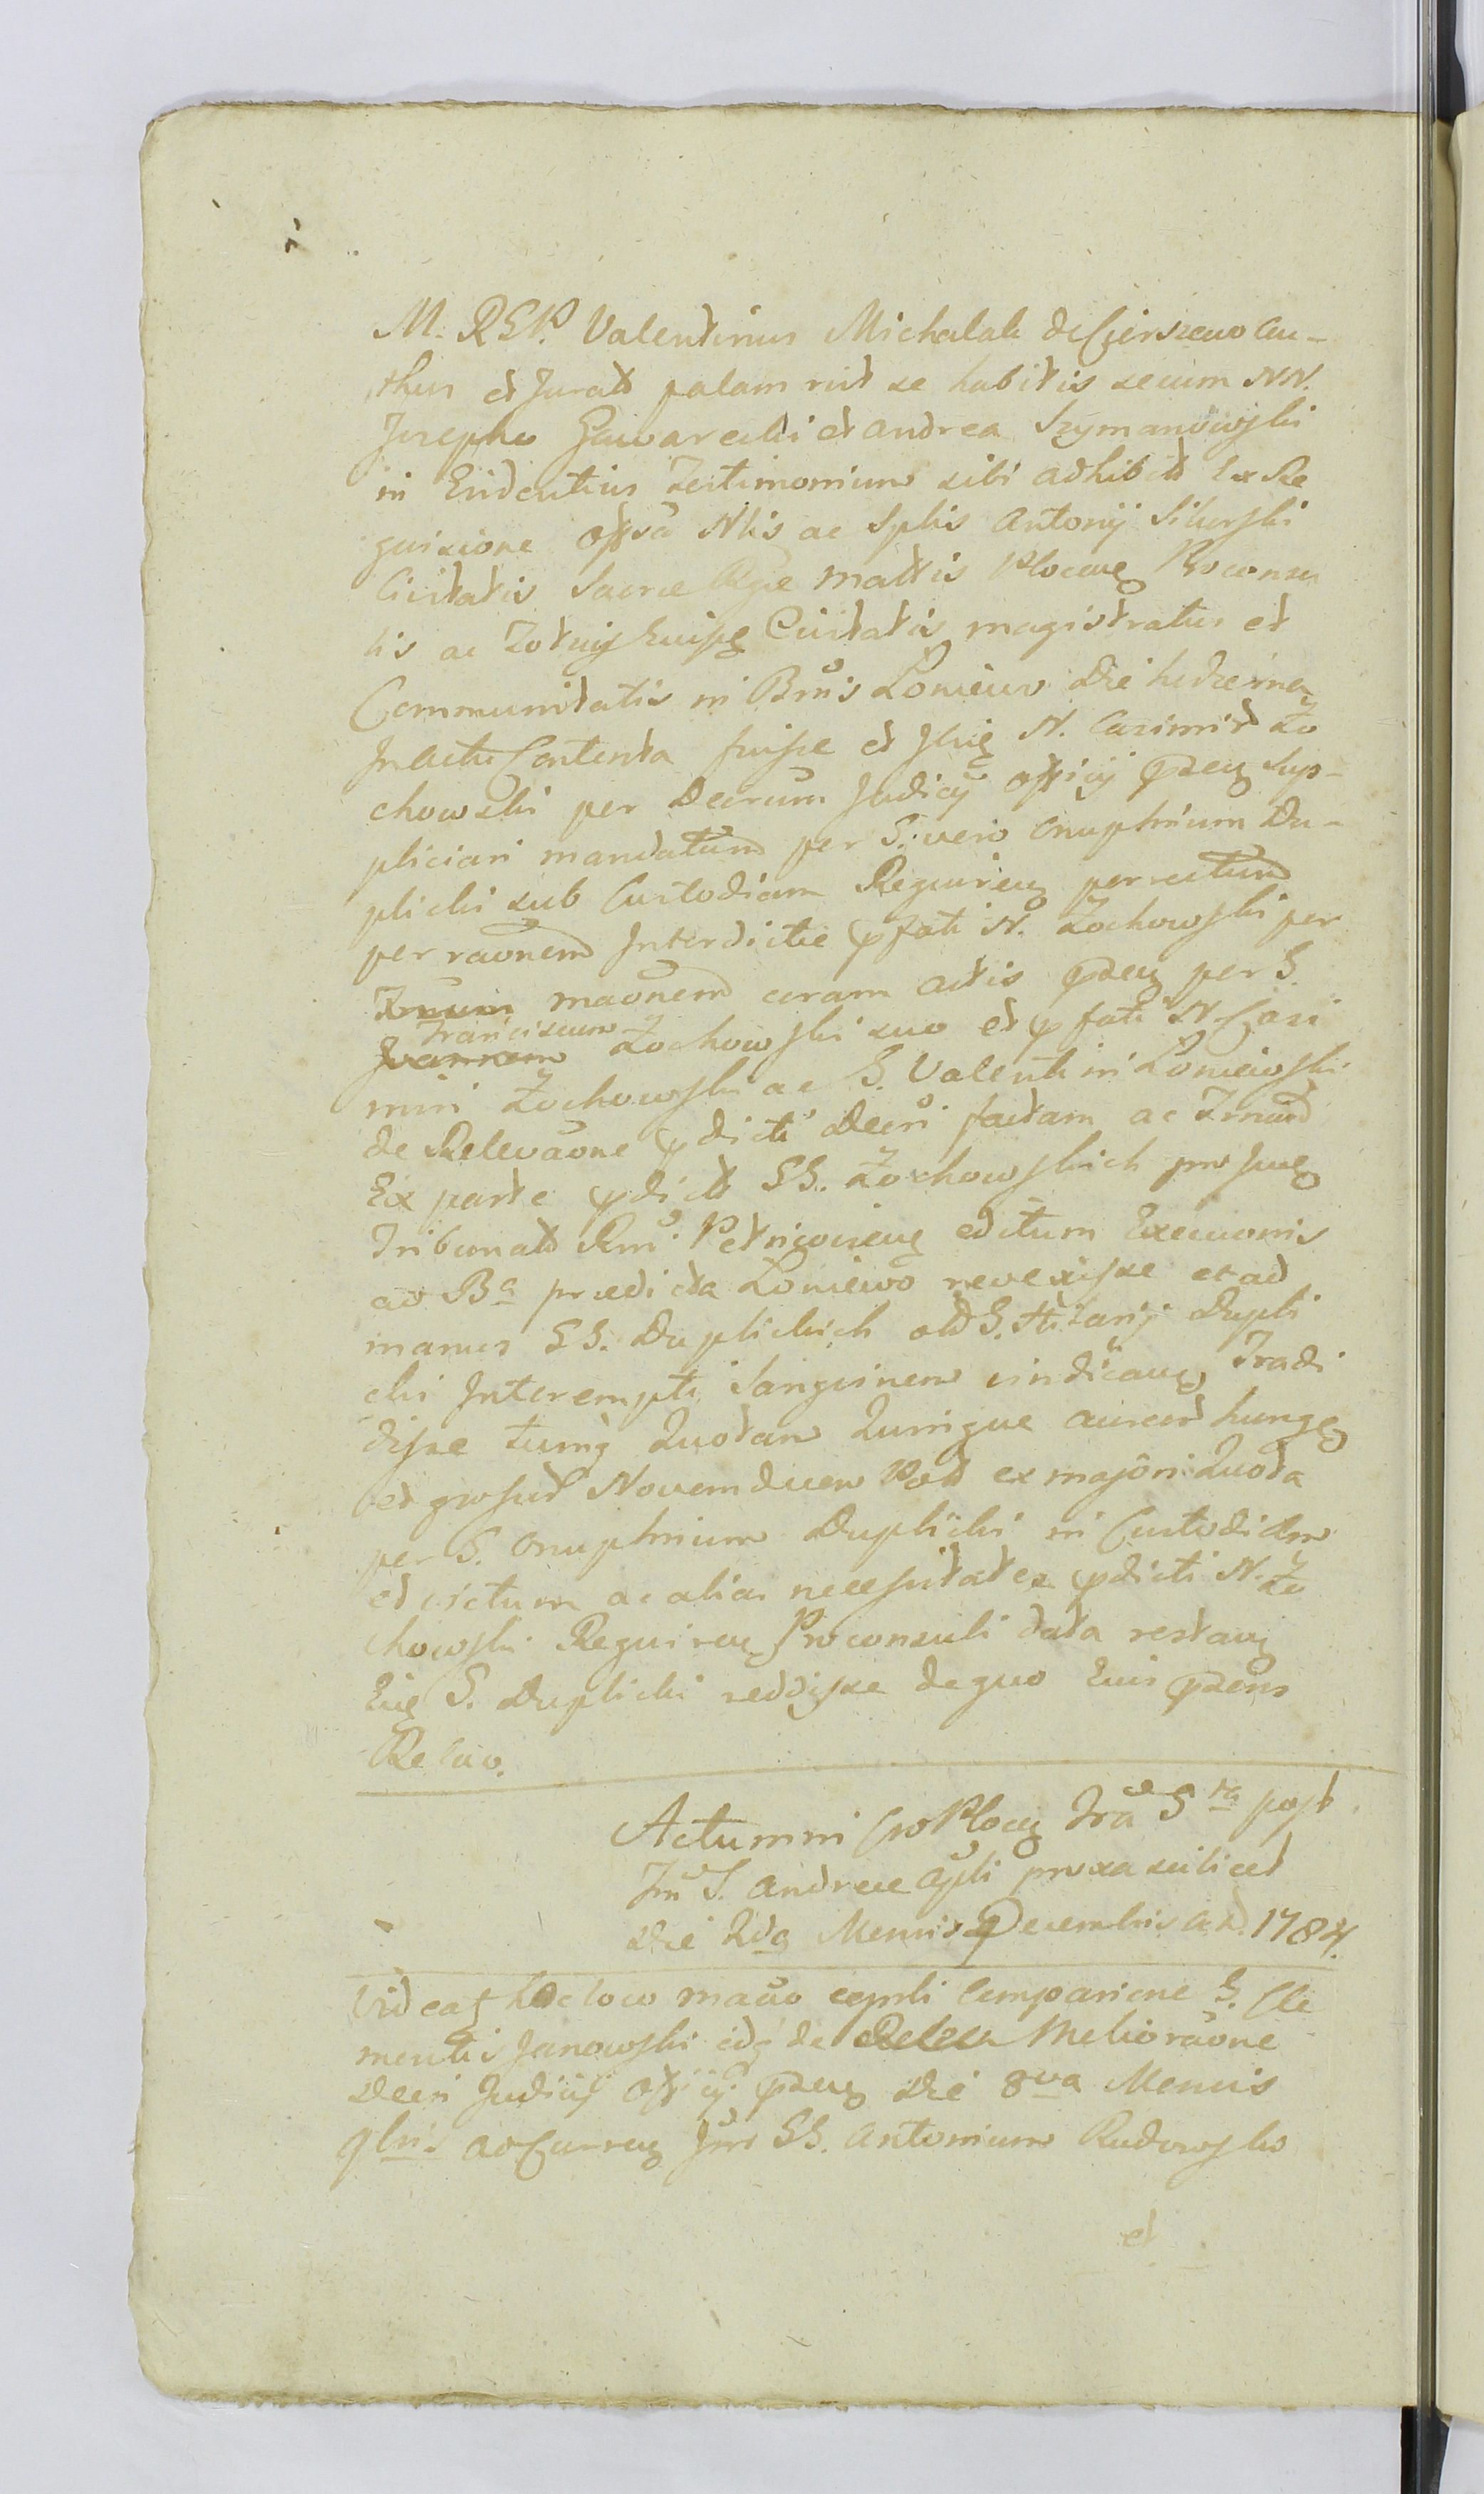 M. RSP. Valentinus Michalak de Cierszewo Au-
thus et Jurats palam rnt se habitis secum NN.
Josepho Gawarecki et Andrea Szymanowski
in Evidentius Testimonium sibi adhibits Ex Re
quisicione offsa Nlis ac Splis Antonij Sikorski
Civitatis Sacrae Rgiae Mattis Plocens Proconsu
lis ac Totius huius Civitatis magistratus et
Communitatis in Bnis Łoniewo die hodierna
In Actu Contenta fuisse et Ibiq N. Casimir Żo
chowski per Decrum Judicij officij pñs sup-
pliciari mandatum per G. vero Onuphrium Du-
plicki sub Custodiam Requirens perrectum
per raonem Interdictae pfati N. Żochowski per
maonem coram actis pñs per G.
Franciscum Żochowski suo et pfati N. Casi
miri Żochowski ac G. Valentini Łoniewski
de Relevaone pdicti Decri factam ac Tmum
Ex parte pdicts GG. Żochowskich pro
Tribunals Rni Petricoviens editum Execuonis
ad Ba praedicta Łoniewo revexisse et ad
manus GG. Duplickich olim G. Hilarij Dupli
cki Interempti Sanguinem vindicans Tradi
disse tumq Quotam Quinque aureor hungs
et grossor Novemdecem Pols ex majori Quota
per G. Onuphrium Duplicki in Custodiam
et victum ac alias necessitates pdicti N. Żo
chowski Requirens Proconsuli data restans
Eiq G. Duplicki reddisse de quo Eius pñs
Relao.
Actum in Cro Plocen Fra 5ta post
Fm S. Andreae Apli proxa scilicet
die 2da Mensis Decembris A.D. 1784.
Videat hoc loco maño Comparicione G. Cle
mentis Janowski idq de Melioraone
Decri Judicij officij pñs die 8va Mensis
9bris ad Currens Inr GG. Antonium Rudowski
et